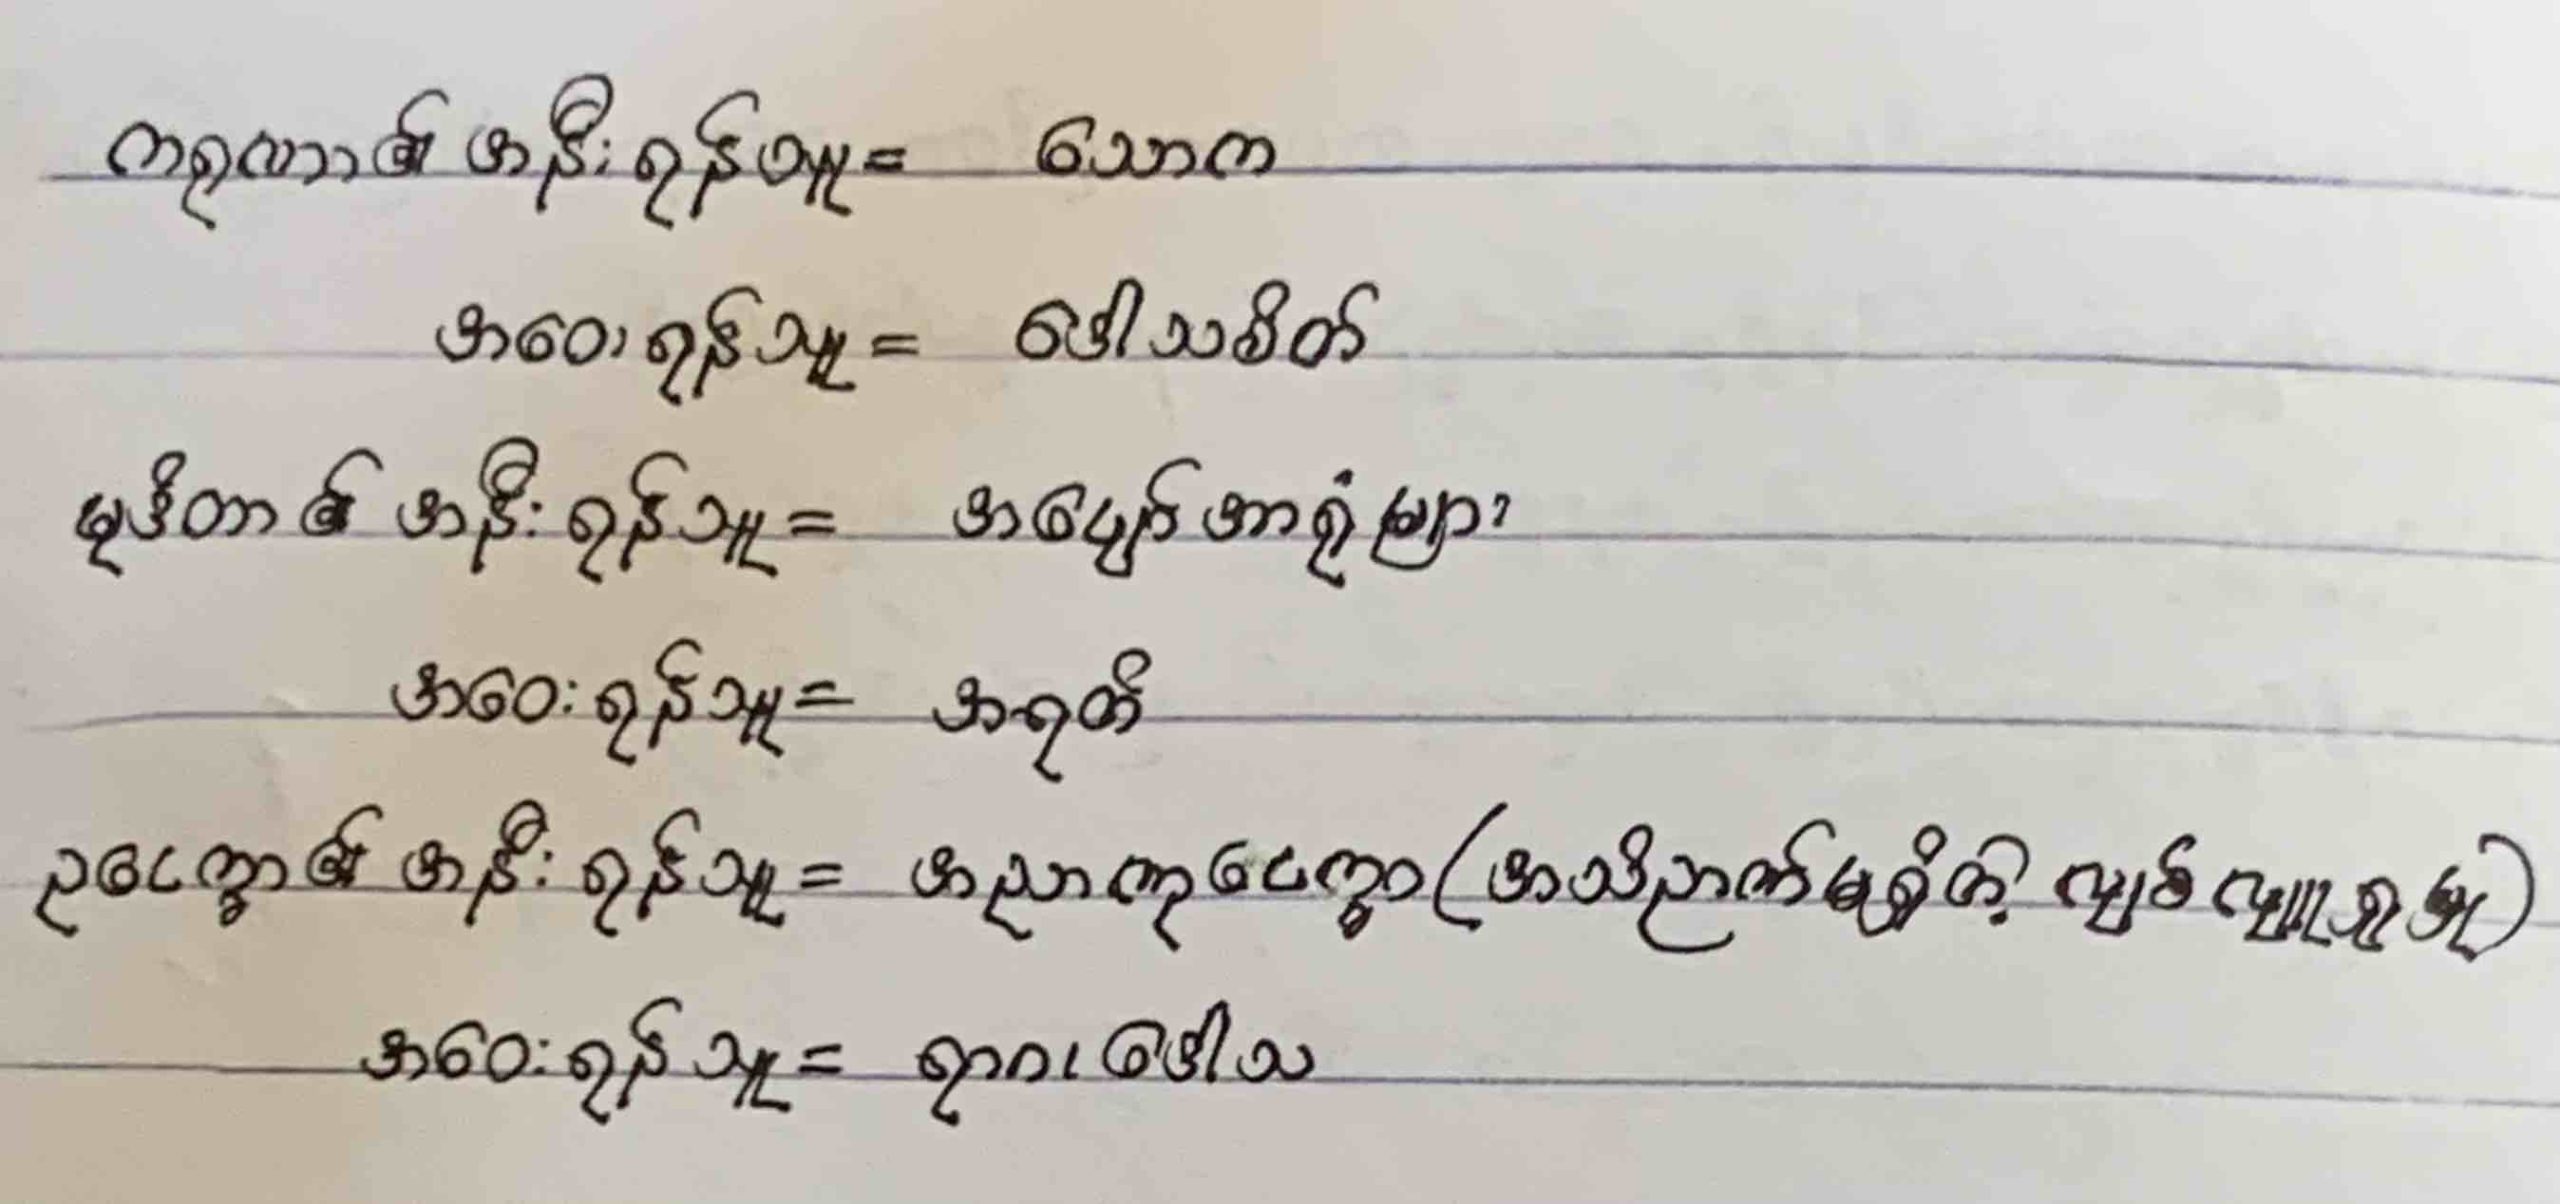 ကရုဏာ၏ အနီးရန်သူ = သောက
အဝေးရန်သူ = ဒေါသစိတ်
မုဒိတာ၏ အနီးရန်သူ = အပျော်အာရုံများ
အဝေးရန်သူ = အရတိ
ဥပေက္ခာ၏ အနီးရန်သူ = အညာဏုပေက္ခာ (အသိဉာဏ်မရှိတဲ့ လျစ်လျူရှုမှု)
အဝေးရန်သူ = ရာဂ၊ ဒေါသ